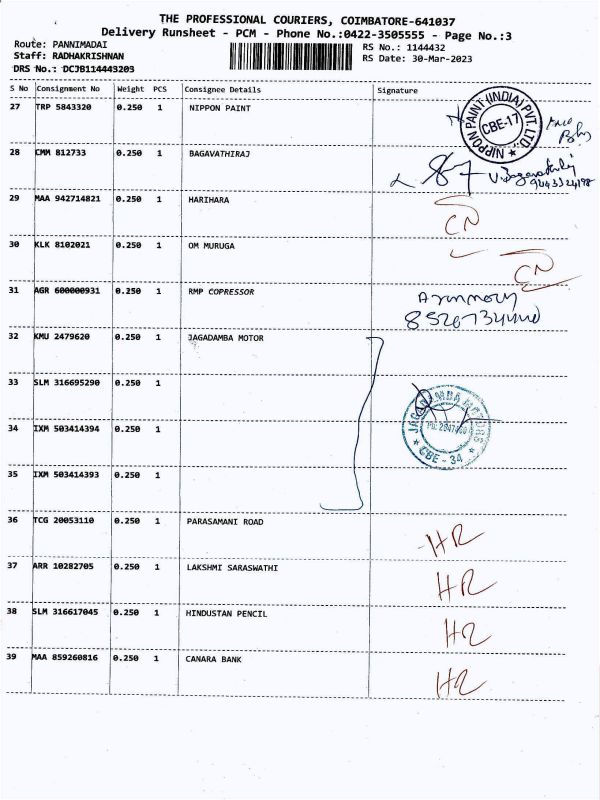 THE PROFESSIONAL COURIERS, COIMBATORE-641037
Delivery Runsheet - PCM - Phone No.:0422-3505555 - Page No.:3
Route: PANNIMADAI
Staff: RADHAKRISHNAN
DRS No.: DCJB114443203
RS No.: 1144432
RS Date: 30-Mar-2023
S No Consignment No Weight PCS Consignee Details Signature
27 TRP 5843320 0.250 1 NIPPON PAINT
NIPPON PAINT (INDIA) PVT. LTD
CBE-17
28 CMM 812733 0.250 1 BAGAVATHIRAJ
29 MAA 942714821 0.250 1 HARIHARA CN
30 KLK 8102021 0.250 1 OM MURUGA CN
31 AGR 600000931 0.250 1 RMP COPRESSOR
32 KMU 2479620 0.250 1 JAGADAMBA MOTOR
33 SLM 316695290 0.250 1
JAGADAMBA MOTORS
CBE - 34
34 IXM 503414394 0.250 1
35 IXM 503414393 0.250 1
36 TCG 20053110 0.250 1 PARASAMANI ROAD HR
37 ARR 10282705 0.250 1 LAKSHMI SARASWATHI HR
38 SLM 316617045 0.250 1 HINDUSTAN PENCIL HR
39 MAA 859260816 0.250 1 CANARA BANK HR